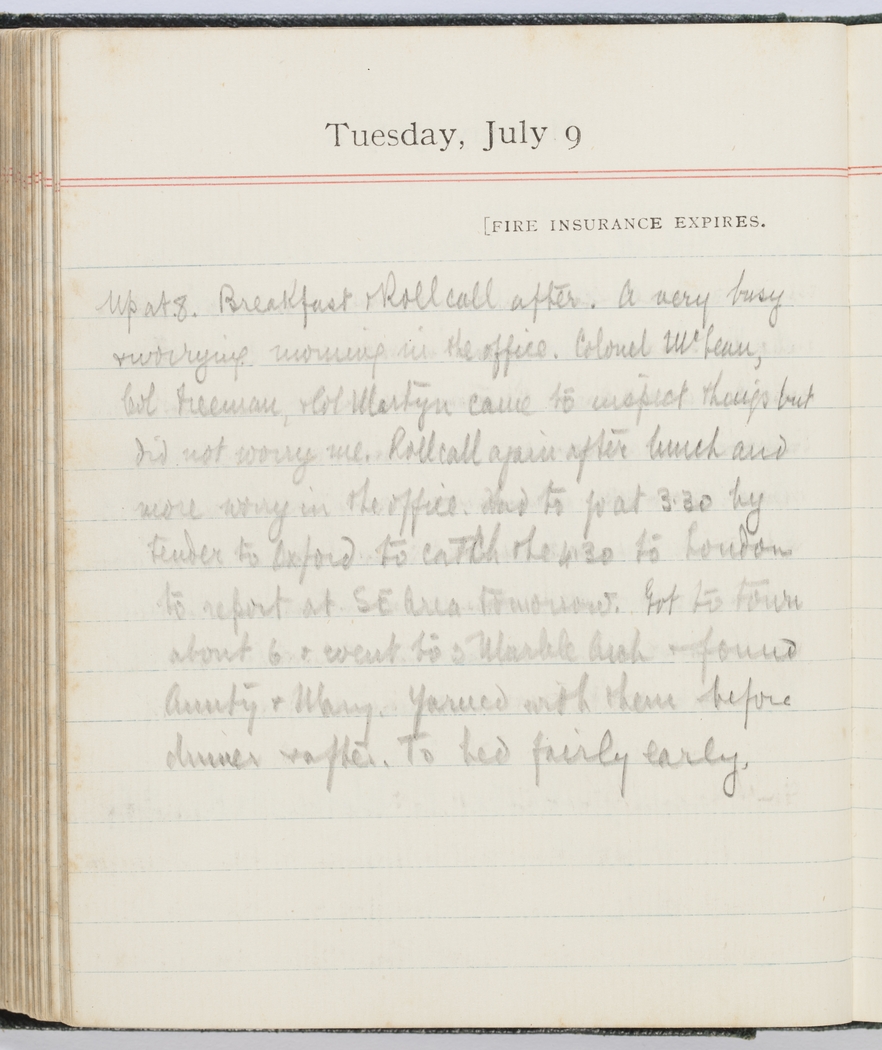 Tuesday, July 9
[FIRE INSURANCE EXPIRES.
Up at 8. Breakfast & Rollcall after. A very busy
& worrying morning in the office. Colonel McLean,
Col Freeman, & Col Martyn came to inspect things but
did not worry me. Rollcall again after lunch and
more worry in the office. Had to go at 3.30 by
tender to Oxford to catch the 4.30 to London
to report at SE Area tomorrow. Got to town
about 6 & went to 5 Marble Arch & found
Aunty & Mary. Yarned with them before
dinner & after. To bed fairly early.